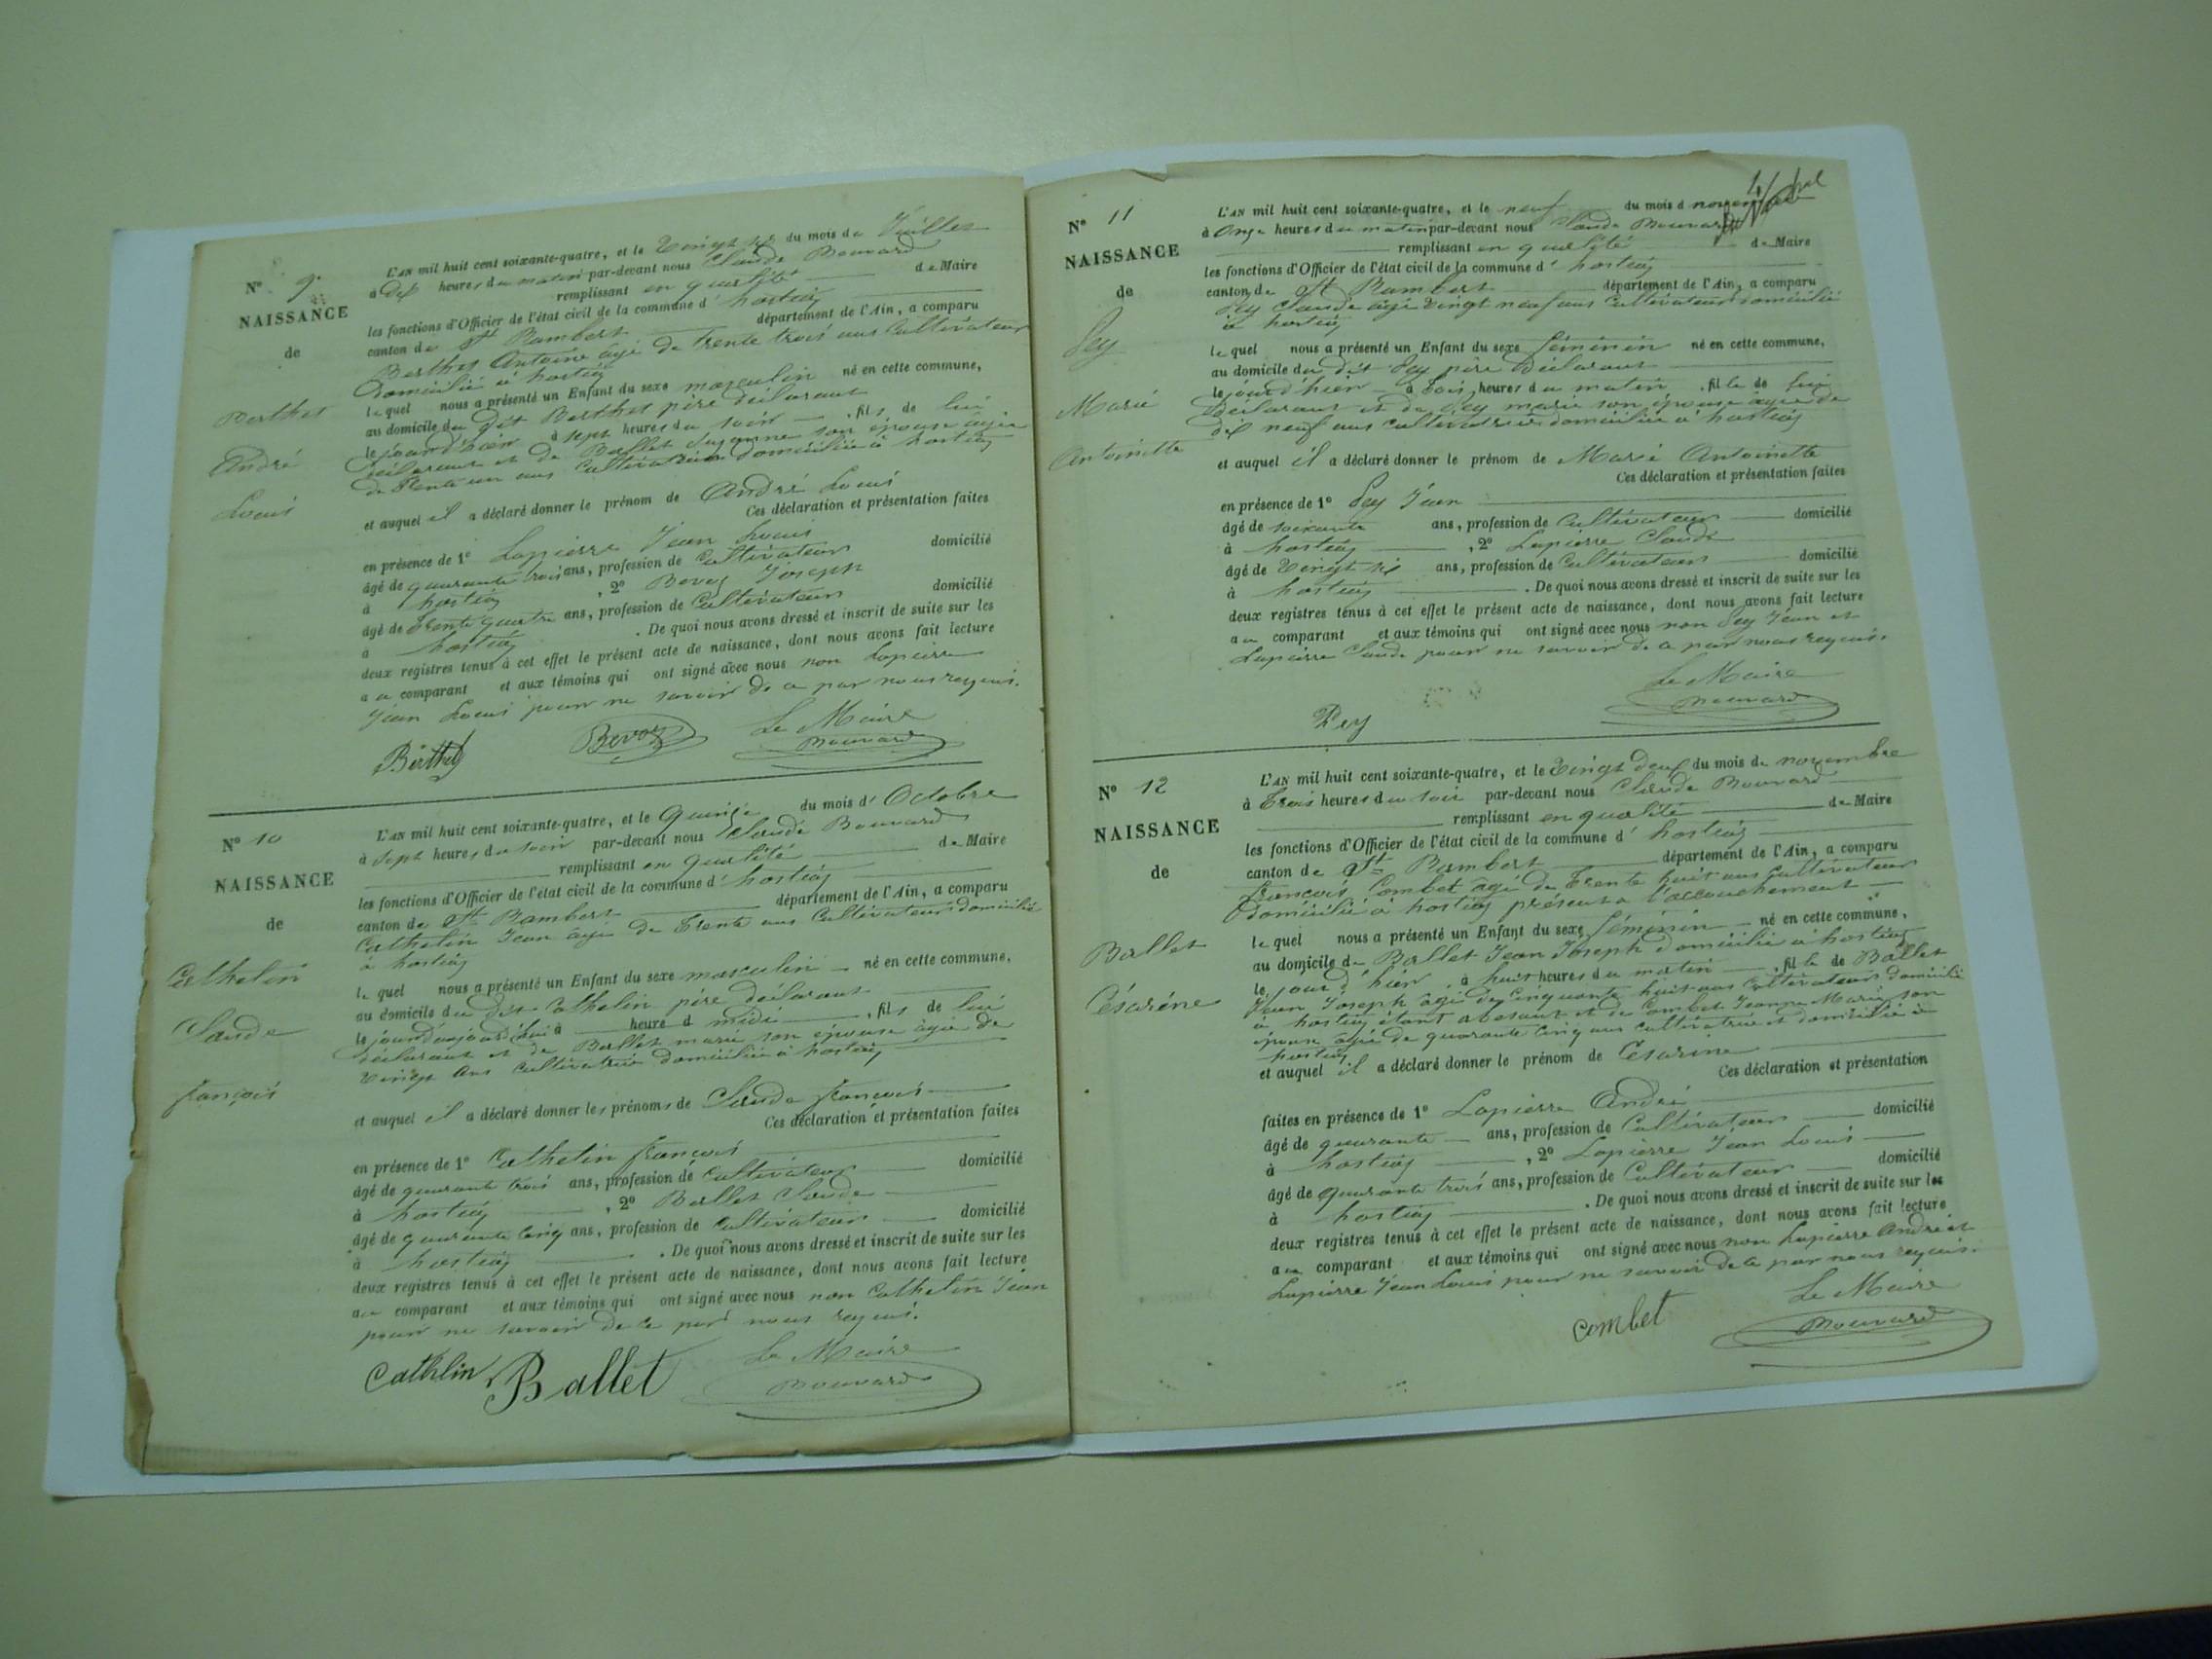 Nº 9
NAISSANCE
de
Berthet
André
Louis
L'AN mil huit cent soixante-quatre, et le Vingt six du mois de Juillet
à dix heures du matin par-devant nous Claude Bouvard
remplissant en qualité de Maire
les fonctions d'Officier de l'état civil de la commune d' hostiaz
canton de St Rambert département de l'Ain, a comparu
Berthet Antoine âgé de trente trois ans Cultivateur
Domicilié à hostiaz
lequel nous a présenté un Enfant du sexe masculin né en cette commune,
au domicile du dit Berthet père déclarant
le jour d'hier à sept heures du soir, fils de lui
déclarant et de Ballet Suzanne son épouse âgée
de trente un ans Cultivatrice domiciliée à hostiaz
et auquel il a déclaré donner le prénom de André Louis
Ces déclaration et présentation faites
en présence de 1º Lapierre Jean Louis
âgé de quarante trois ans, profession de Cultivateur domicilié
à hostiaz, 2º Bevoz Joseph
âgé de trente quatre ans, profession de Cultivateur domicilié
à hostiaz. De quoi nous avons dressé et inscrit de suite sur les
deux registres tenus à cet effet le présent acte de naissance, dont nous avons fait lecture
au comparant et aux témoins qui ont signé avec nous non Lapierre
Jean Louis pour ne savoir de ce par nous requis.
Berthet Bevoz Le Maire
Bouvard
Nº 10
NAISSANCE
de
Cathelin
Claude
françois
L'AN mil huit cent soixante-quatre, et le Quinze du mois d' Octobre
à Sept heures du soir par-devant nous Claude Bouvard
remplissant en qualité de Maire
les fonctions d'Officier de l'état civil de la commune d' hostiaz
canton de St Rambert département de l'Ain, a comparu
Cathelin Jean âgé de trente ans Cultivateur domicilié
à hostiaz
lequel nous a présenté un Enfant du sexe masculin né en cette commune,
au domicile du dit Cathelin père déclarant
le jour d'aujourd'hui à heure d midi, fils de lui
déclarant et de Ballet marie son épouse âgée de
vingt ans Cultivatrice domiciliée à hostiaz
et auquel il a déclaré donner les prénoms de Claude françois
Ces déclaration et présentation faites
en présence de 1º Cathelin françois
âgé de quarante trois ans, profession de Cultivateur domicilié
à hostiaz, 2º Ballet Claude
âgé de quarante cinq ans, profession de Cultivateur domicilié
à hostiaz. De quoi nous avons dressé et inscrit de suite sur les
deux registres tenus à cet effet le présent acte de naissance, dont nous avons fait lecture
au comparant et aux témoins qui ont signé avec nous non Cathelin Jean
pour ne savoir de ce par nous requis.
Cathlin Ballet Le Maire
Bouvard
Nº 11
NAISSANCE
de
Pey
Marie
Antoinette
L'AN mil huit cent soixante-quatre, et le neuf du mois d novembre
à Onze heures du matin par-devant nous Claude Bouvard
remplissant en qualité de Maire
les fonctions d'Officier de l'état civil de la commune d' hostiaz
canton de St Rambert département de l'Ain, a comparu
Pey Claude âgé vingt neuf ans Cultivateur domicilié
à hostiaz
lequel nous a présenté un Enfant du sexe féminin né en cette commune,
au domicile du dit Pey père déclarant
le jour d'hier à trois heures du matin, fille de lui
déclarant et de Pey marie son épouse âgée de
dix neuf ans cultivatrice domiciliée à hostiaz
et auquel il a déclaré donner le prénom de Marie Antoinette
Ces déclaration et présentation faites
en présence de 1º Pey Jean
âgé de soixante ans, profession de Cultivateur domicilié
à hostiaz, 2º Lapierre Claude
âgé de vingt six ans, profession de Cultivateur domicilié
à hostiaz. De quoi nous avons dressé et inscrit de suite sur les
deux registres tenus à cet effet le présent acte de naissance, dont nous avons fait lecture
au comparant et aux témoins qui ont signé avec nous non Pey Jean et
Lapierre Claude pour ne savoir de ce par nous requis.
Pey Le Maire
Bouvard
Nº 12
NAISSANCE
de
Ballet
Césarine
L'AN mil huit cent soixante-quatre, et le Vingt deux du mois de novembre
à trois heures du soir par-devant nous Claude Bouvard
remplissant en qualité de Maire
les fonctions d'Officier de l'état civil de la commune d' hostiaz
canton de St Rambert département de l'Ain, a comparu
françois Combet âgé de trente huit ans Cultivateur
domicilié à hostiaz présent à l'accouchement
lequel nous a présenté un Enfant du sexe féminin né en cette commune,
au domicile de Ballet Jean Joseph domicilié à hostiaz
le jour d'hier, à huit heures du matin, fille de Ballet
Jean Joseph âgé de cinquante huit ans Cultivateur domicilié
à hostiaz étant absent et de Combet Jeanne Marie son
épouse âgée de quarante cinq ans cultivatrice domiciliée à
hostiaz
et auquel il a déclaré donner le prénom de Césarine
Ces déclaration et présentation
faites en présence de 1º Lapierre André
âgé de quarante ans, profession de Cultivateur domicilié
à hostiaz, 2º Lapierre Jean Louis
âgé de quarante trois ans, profession de Cultivateur domicilié
à hostiaz. De quoi nous avons dressé et inscrit de suite sur les
deux registres tenus à cet effet le présent acte de naissance, dont nous avons fait lecture
au comparant et aux témoins qui ont signé avec nous non Lapierre André et
Lapierre Jean Louis pour ne savoir de ce par nous requis.
Combet Le Maire
Bouvard